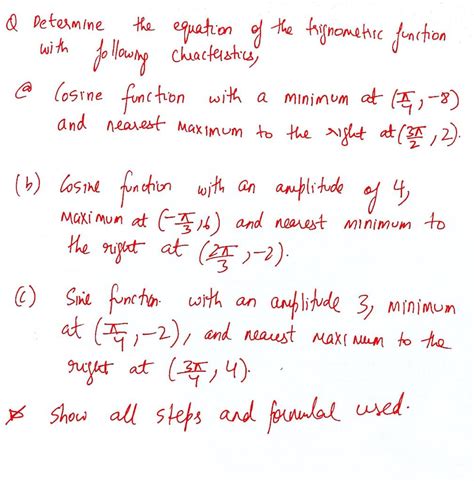 Q Determine the equation of the trignometric function
with following chracterstics,
(a) Cosine function with a minimum at (π/4, -8)
and nearest maximum to the right at (3π/2, 2).
(b) Cosine function with an amplitude of 4,
maximum at (-π/3, 6) and nearest minimum to
the right at (2π/3, -2).
(c) Sine function with an amplitude 3, minimum
at (π/4, -2), and nearest maximum to the
right at (3π/4, 4).
☆ Show all steps and formulae used.